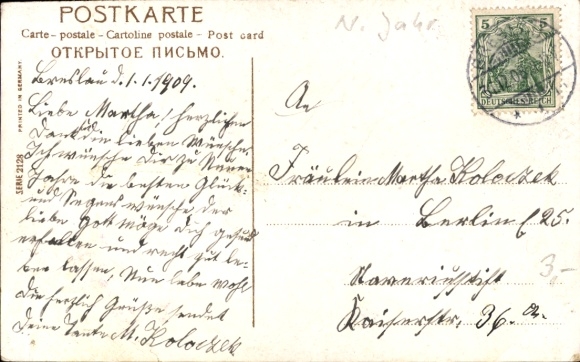 POSTKARTE
Carte-postale - Cartoline postale - Post card
ОТКРЫТОЕ ПИСЬМО.
PRINTED IN GERMANY.
SERIE 2128
N. Jahr
5 5
DEUTSCHES REICH
Breslau d. 1.1.1909.
Liebe Martha! herzlichen
Dank für die lieben Wünsche
Ich wünsche Dir zu Neuen
Jahre die besten Glück-
und Segenswünsche, der
liebe Gott möge Dich gesund
erhalten und recht gut le-
ben lassen, Nun lebe wohl
die herzlich Grüße sendet
Deine Tante M. Kolaczek
An
Fräulein Martha Kolaczek
in Berlin C 25.
Kaiserstr. 36.
3,-